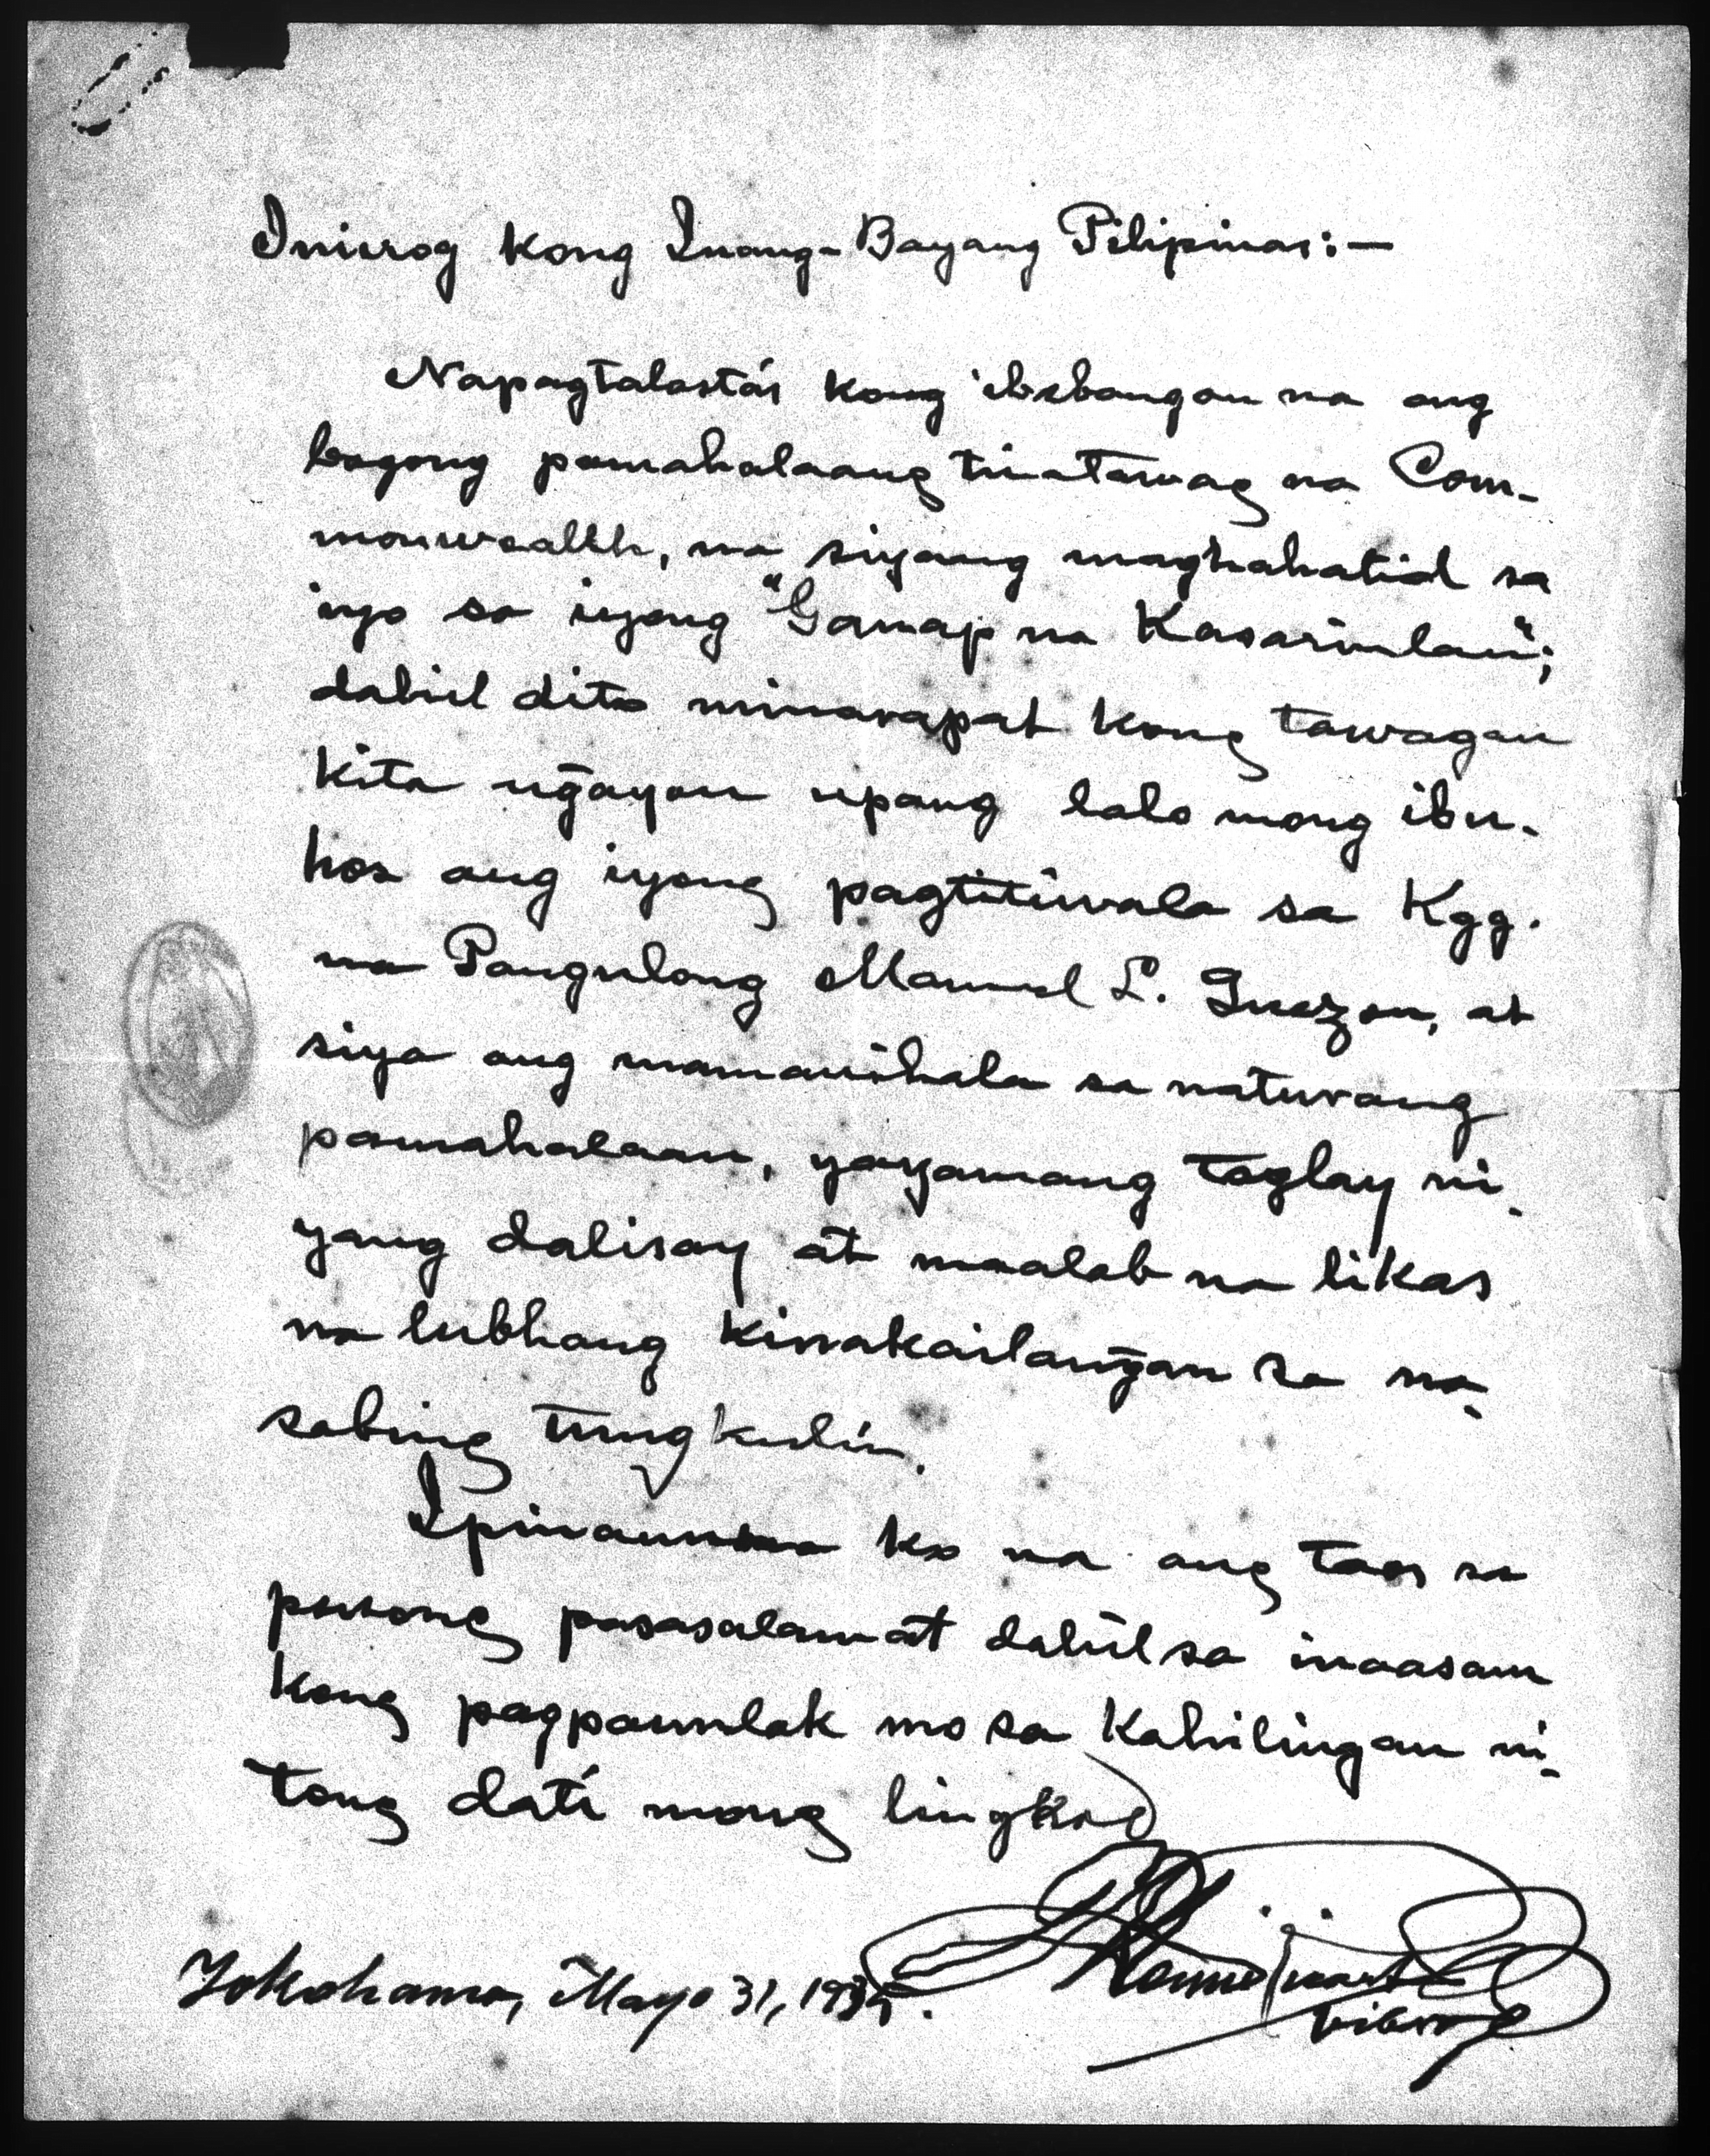 Iniirog kong Inang-Bayang Pilipinas:—
Napagtalastás kong ibabangon na ang
bagong pamahalaang tinatawag na Com-
monwealth, na siyang maghahatid sa
iyo sa iyong "Ganap na Kasarinlan";
dahil dito minarapat kong tawagan
kita ng̃ayon upang lalo mong ibu-
hos ang iyong pagtitiwala sa Kgg.
na Pangulong Manuel L. Quezon, at
siya ang mamanihala sa naturang
pamahalaan, yayamang taglay ni-
yang dalisay at maalab na likas
na lubhang kinakailang̃an sa na-
sabing tungkulin.
Ipinauuna ko na ang taos sa
pusong pasasalamat dahil sa inaasam
kong pagpaunlak mo sa kahilingan ni-
tong dati mong lingkod
Yokohama, Mayo 31, 1935.